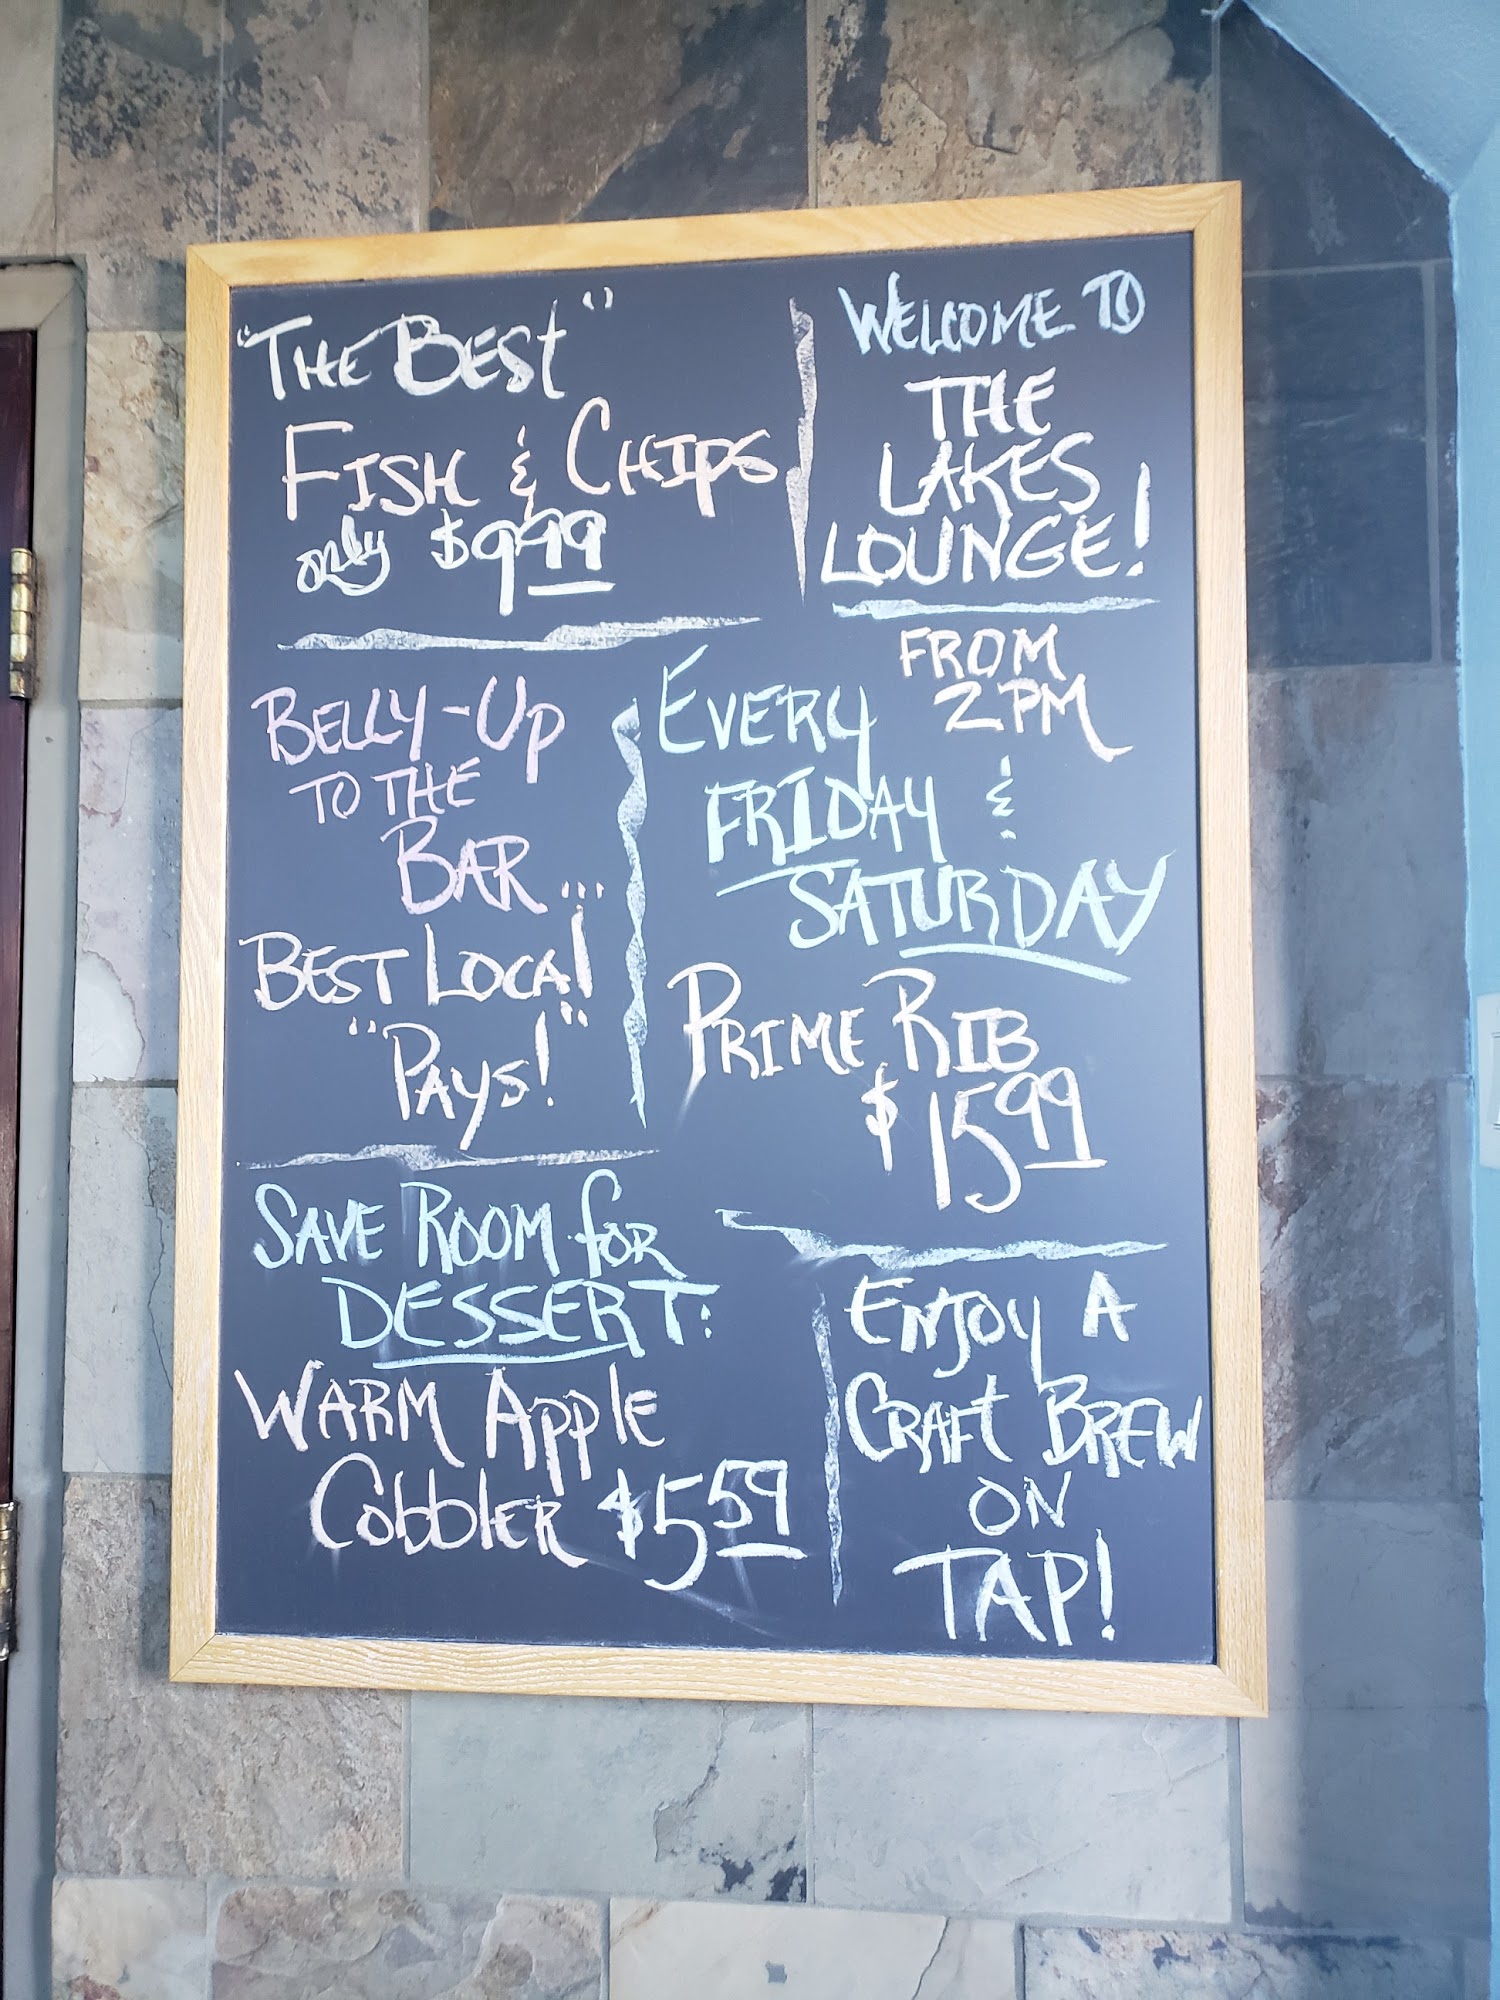 "The Best"
Fish & Chips
only $9.99
Welcome to
The
Lakes
Lounge!
Belly-Up
to the
Bar...
Best Local
"Pays!"
From
2PM
Every
Friday &
Saturday
Prime Rib
$15.99
Save Room for
Dessert:
Warm Apple
Cobbler $5.59
Enjoy A
Craft Brew
on
Tap!